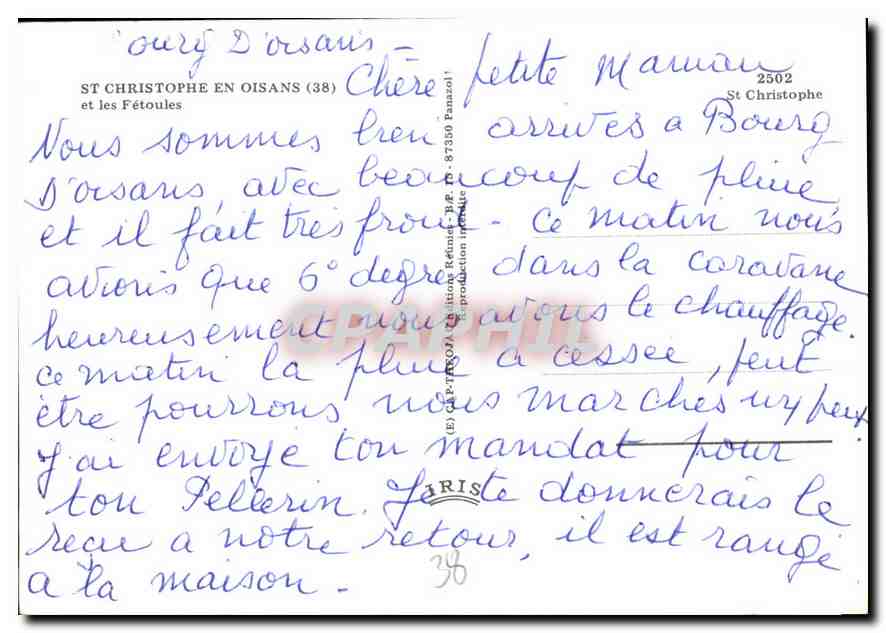 ourg D'oisans -
ST CHRISTOPHE EN OISANS (38)
et les Fétoules
2502
St Christophe
Chère petite Maman
Nous sommes bien arrivés a Bourg
D'oisans, avec beaucoup de pluie
et il fait très froid - ce matin nous
avions que 6° degrés dans la caravane
heureusement nous avons le chauffage.
ce matin la pluie a cessée, peut
être pourrons nous marches un peu.
J'ai envoyé ton mandat pour
ton Pellerin. Je te donnerais le
recu a notre retour, il est rangé
a la maison -
38
(E) CAP-THEOJAC Editions Réunies - B.P. 13 - 87350 Panazol
Reproduction interdite
IRIS
CPAPHIL